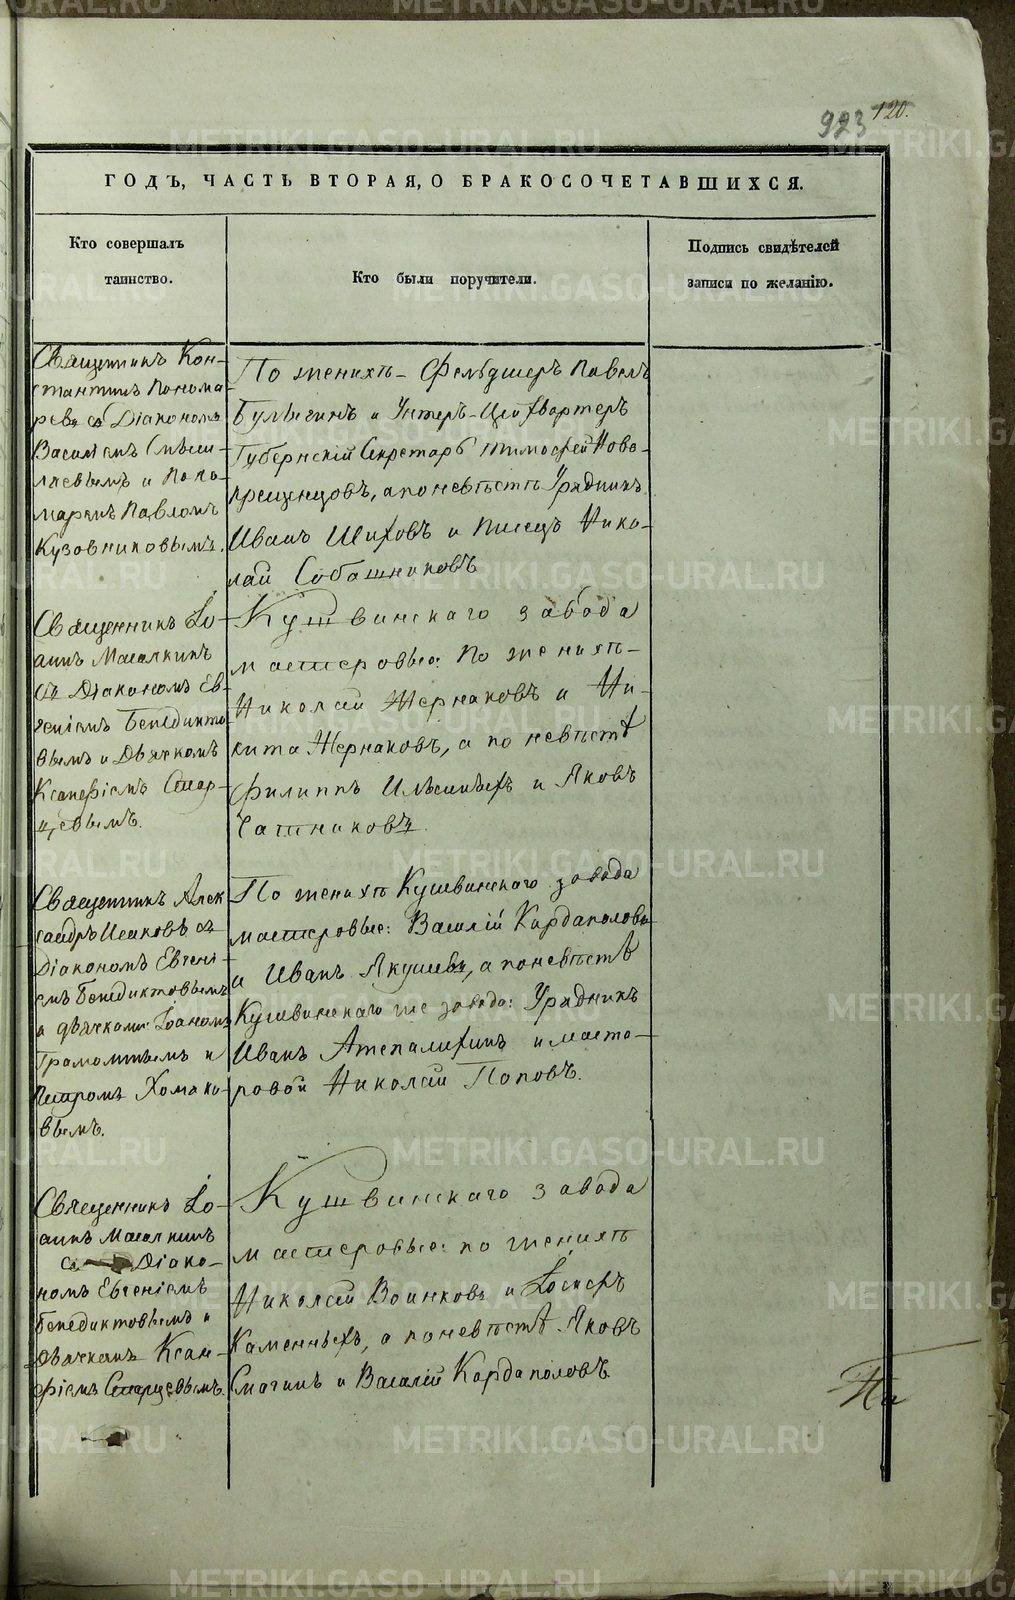 923 120.
ГОДЪ, ЧАСТЬ ВТОРАЯ, О БРАКОСОЧЕТАВШИХСЯ.
Кто совершалъ
таинство.
Кто были поручители.
Подпись свидѣтелей
записи по желанію.
Священникъ Кон-
стантинъ Понома
ревъ съ Діакономъ
Василіемъ
и Поно-
маремъ Павломъ
Кузовниковымъ.
По женихѣ - Фельдшеръ Павелъ
Булыгинъ и Унтеръ-Цейхвартеръ
Губернскій Секретарь Тимофей Ново-
крещенцовъ, а по невѣстѣ Урядникъ
Иванъ Шиховъ и Писецъ Нико-
лай Собашниковъ
Священникъ Іо-
аннъ Масалкинъ
съ Діакономъ Ев-
геніемъ Бенедикто-
вымъ и Дьячкомъ
Ксанфіемъ Стар-
цевымъ.
Кушвинскаго завода
мастеровые: По женихѣ -
Николай Жернаковъ и Ни-
кита Жернаковъ, а по невѣстѣ
Филиппъ и Яковъ
Чашниковъ.
Священникъ Алек
сандръ Исаковъ съ
Діакономъ Евгені-
емъ Бенедиктовымъ
и дьячками: Іоаномъ
и
Петромъ Хомяко-
вымъ.
По женихѣ Кушвинскаго завода
мастеровые: Василій Кардаполовъ
и Иванъ Якушевъ, а по невѣстѣ
Кушвинскаго же завода: Урядникъ
Иванъ и масте-
ровой Николай Поповъ.
Священникъ Іо-
аннъ Масалкинъ
съ Діако-
номъ Евгеніемъ
Бенедиктовымъ и
Дьячкомъ Ксан-
фіемъ Старцевымъ.
Кушвинскаго завода
мастеровые: по женихѣ
Николай Воинковъ и Іосифъ
Каменныхъ, а по невѣстѣ Яковъ
Смагинъ и Василій Кардаполовъ
METRIKI.GASO-URAL.RU